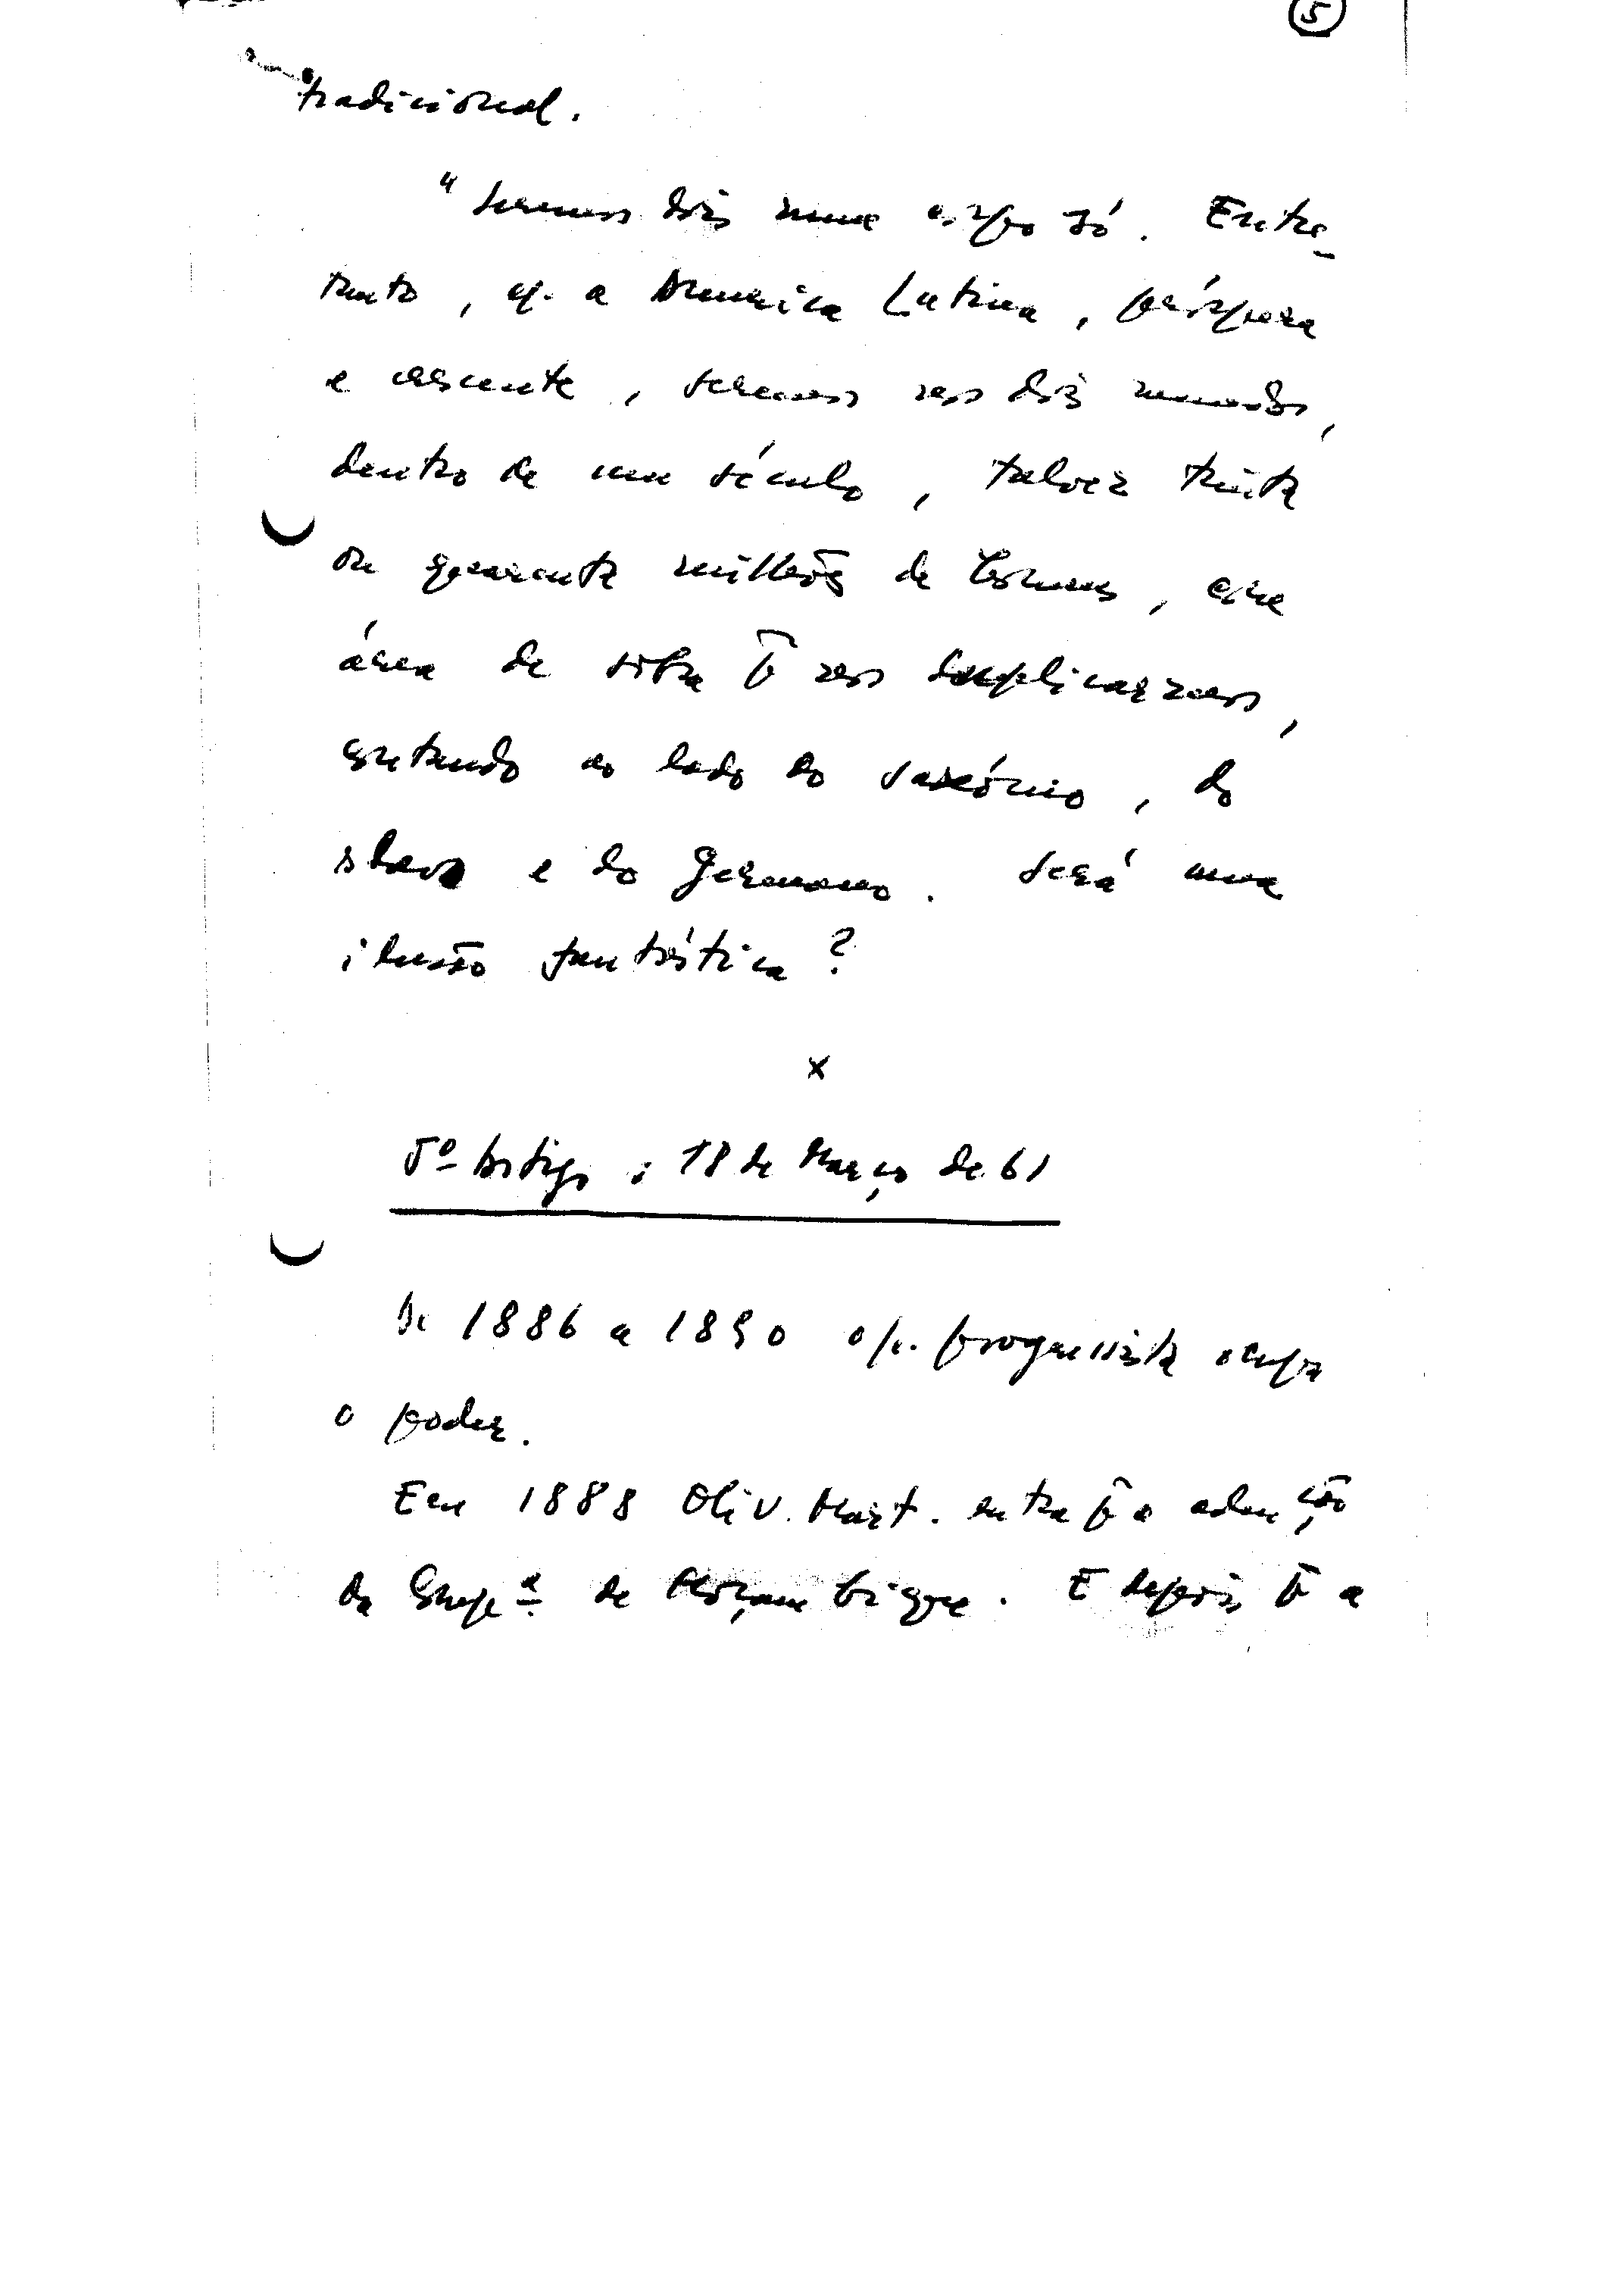 5
tradicional.
"seremos dois num corpo só. Entre-
tanto, q. a America Latina, próspera
e crescente, seremos nos dois mundos,
dentro de um século, talvez trinta
ou quarenta milhões de homens, com
área de sobra p̄ nos duplicarmos,
contando ao lado do saxónio, do
slavo e do germano. Será uma
ilusão fantástica?
x
5º Artigo: 18 de Março de 61
De 1886 a 1890 o p. progressista ocupa
o poder.
Em 1888 Oliv. Mart. entra p̄ a adm ção
da Comp.ª de Moçambique. E depois p̄ a